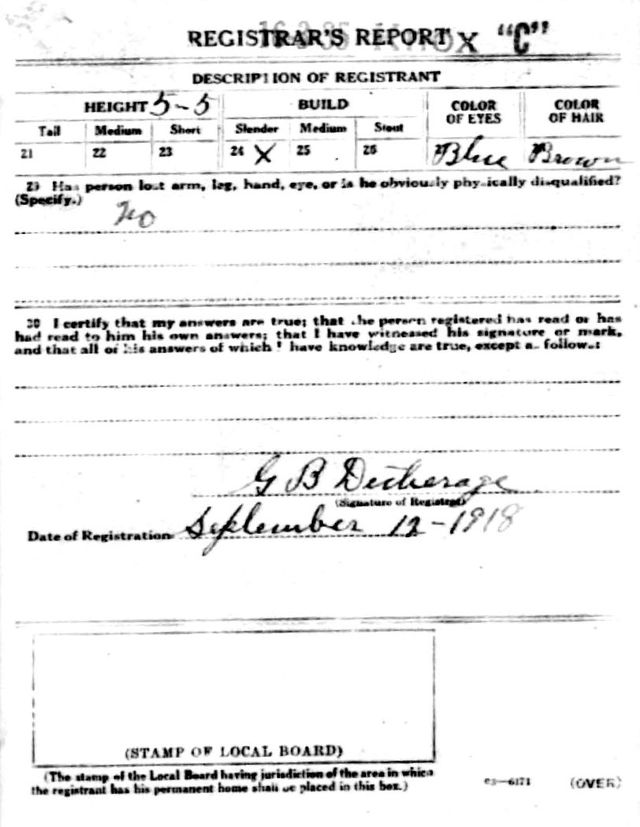 REGISTRAR'S REPORT "C"
DESCRIPTION OF REGISTRANT
HEIGHT 5-5 BUILD COLOR OF EYES COLOR OF HAIR
Tall Medium Short Slender Medium Stout
21 22 23 24 X 25 26 Blue Brown
29 Has person lost arm, leg, hand, eye, or is he obviously physically disqualified?
(Specify.)
No
30 I certify that my answers are true; that the person registered has read or has
had read to him his own answers; that I have witnessed his signature or mark,
and that all of his answers of which I have knowledge are true, except as follows:
G B
(Signature of Registrar)
Date of Registration September 12-1918
(STAMP OF LOCAL BOARD)
(The stamp of the Local Board having jurisdiction of the area in which
the registrant has his permanent home shall be placed in this box.)
03—6171 (OVER)